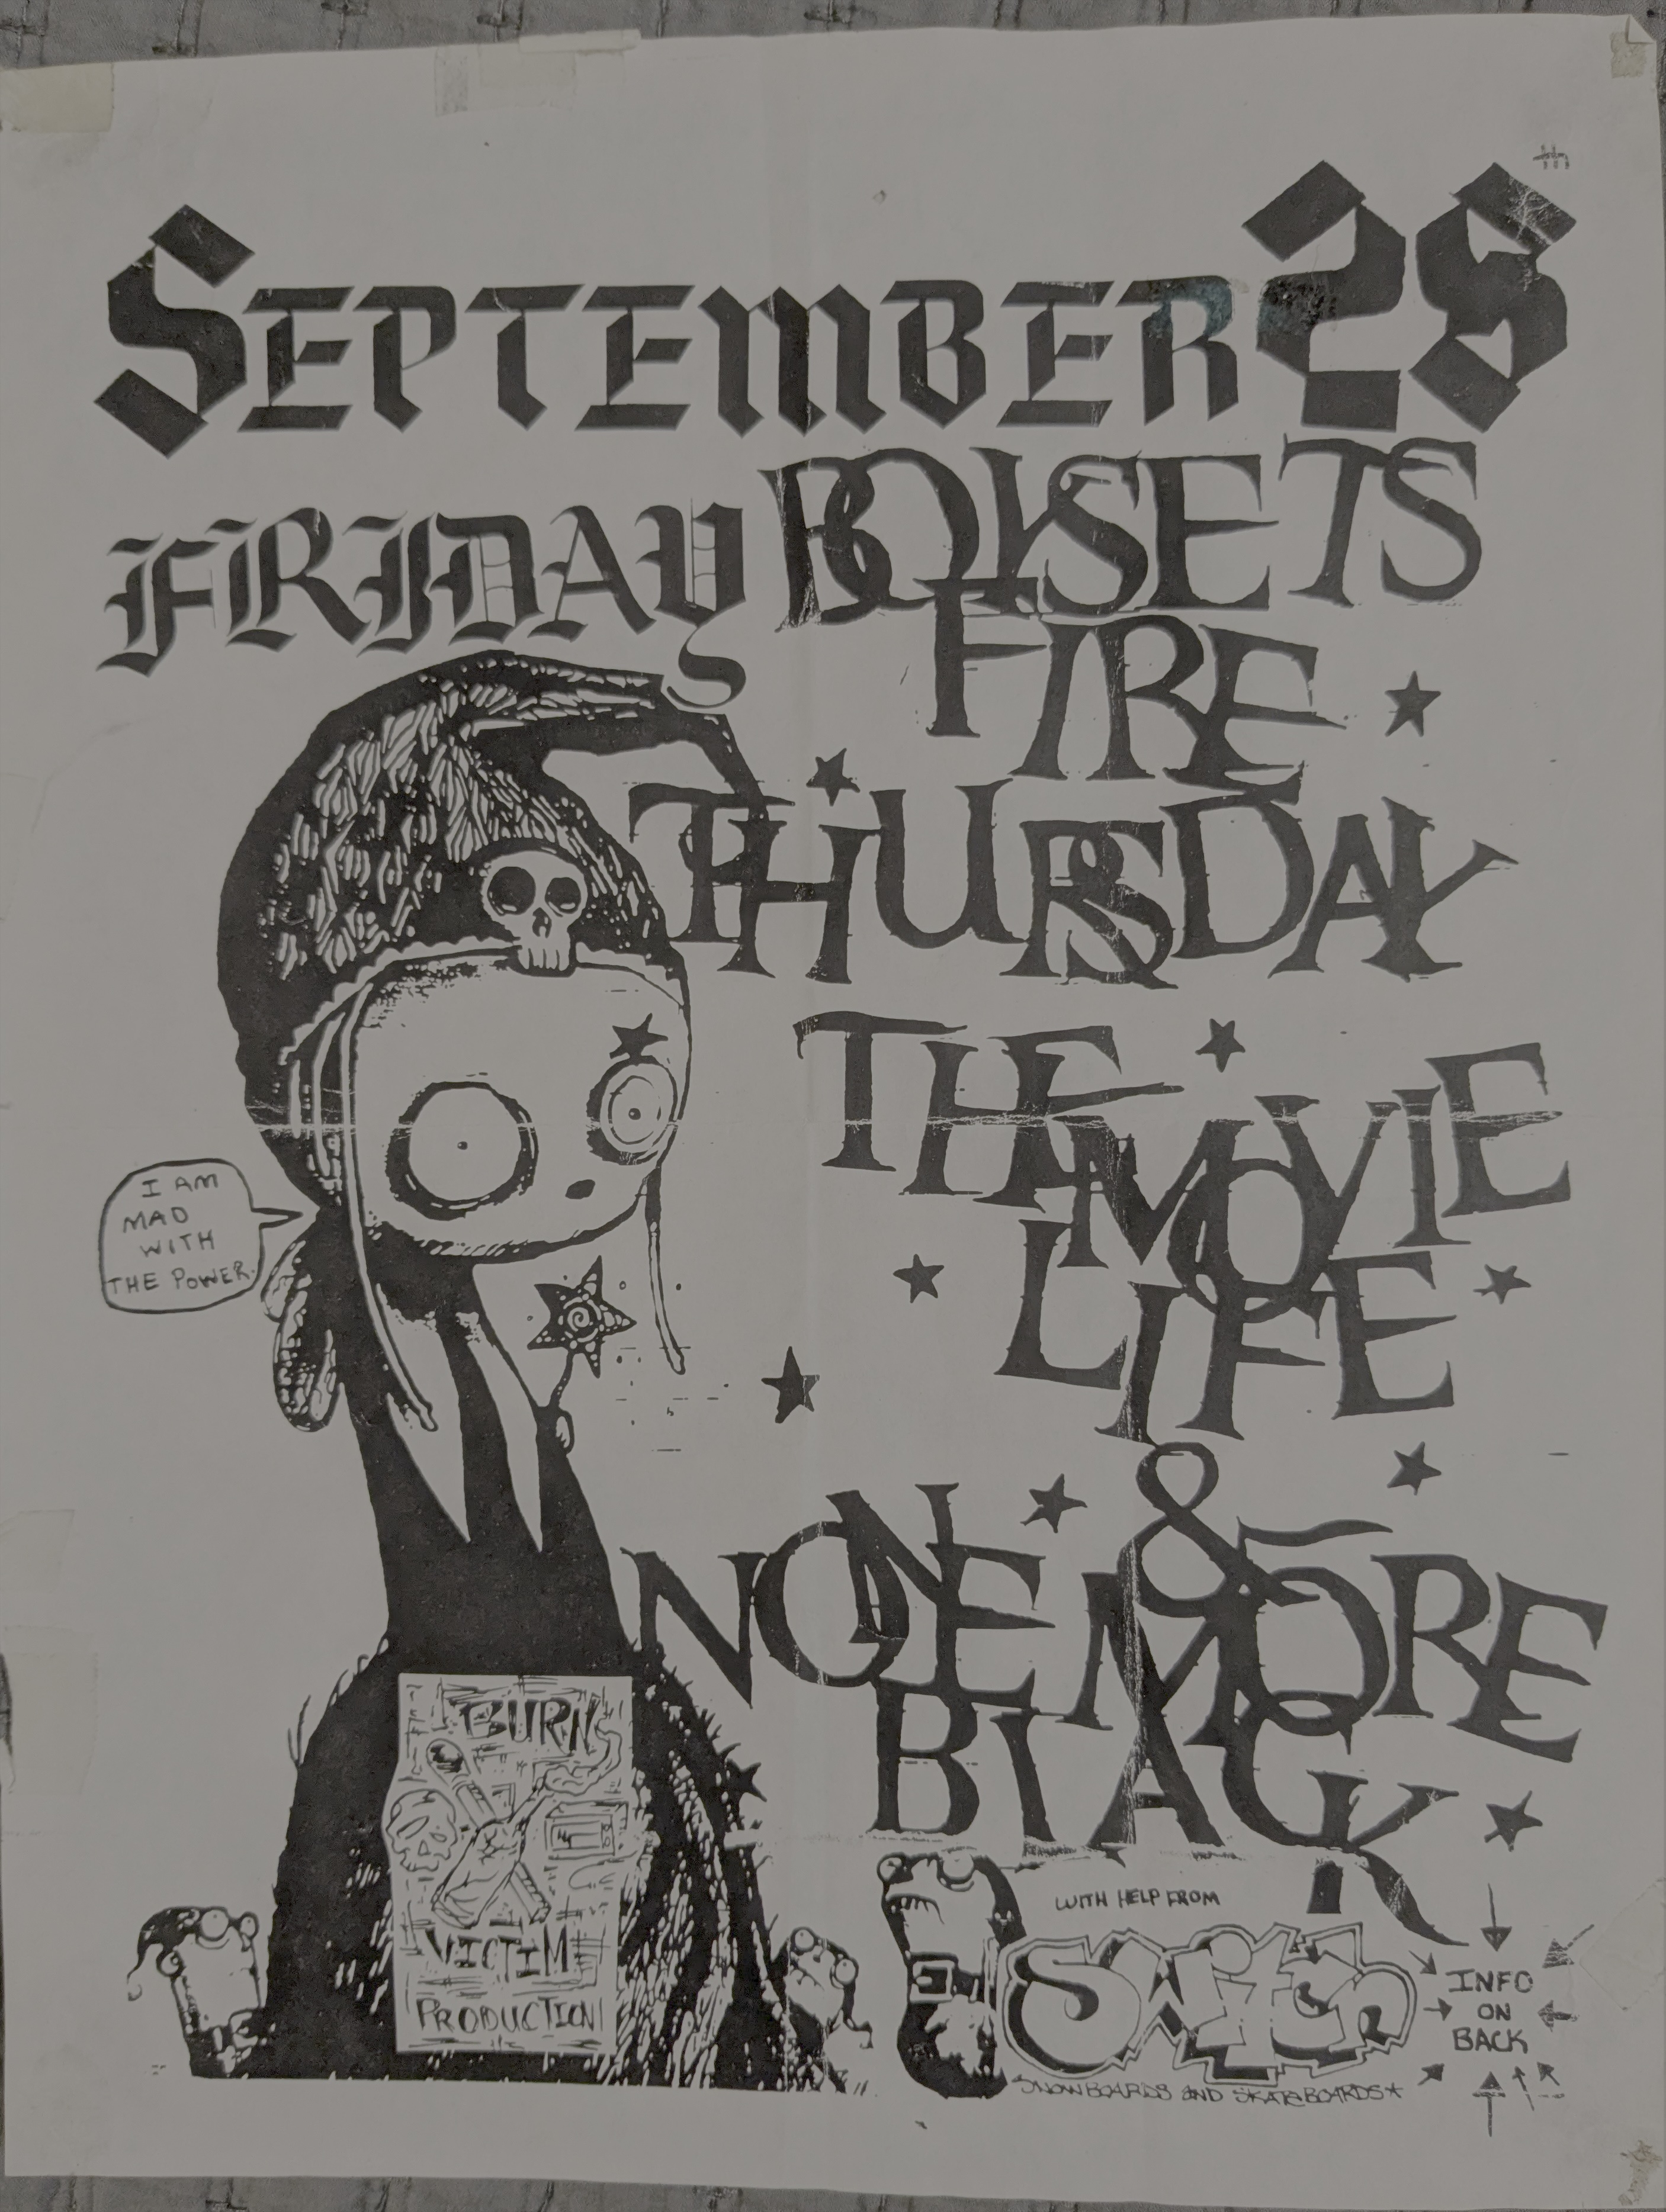 SEPTEMBER 28
th
FRIDAY
BOYSETS
FIRE
THURSDAY
THE MOVIE
LIFE
&
NONE MORE
BLACK
I AM
MAD
WITH
THE POWER.
BURN
VICTIM
PRODUCTION
WITH HELP FROM
Switch
SNOWBOARDS AND SKATEBOARDS*
INFO
ON
BACK